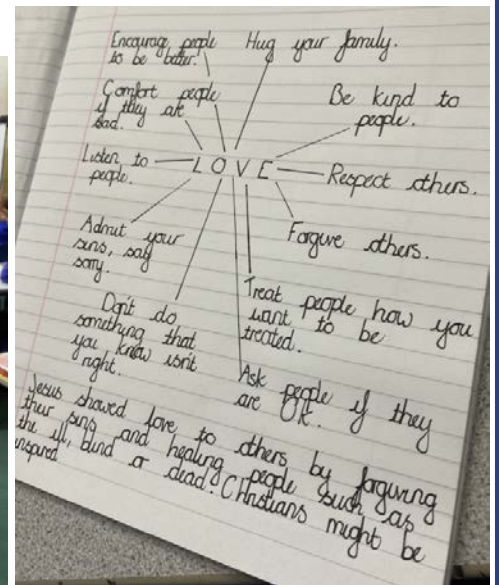 Encourage people
to be better.
Hug your family.
Comfort people
if they are
sad.
Be kind to
people.
Listen to
people.
L O V E
Respect others.
Admit your
sins, say
sorry.
Forgive others.
Don't do
something that
you know isn't
right.
Treat people how you
want to be
treated.
Ask people if they
are OK.
Jesus showed love to others by forgiving
their sins and healing people such as
the ill, blind or dead. Christians might be
inspired